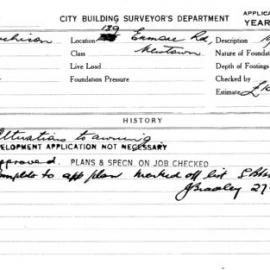 CITY BUILDING SURVEYOR'S DEPARTMENT APPLICA
YEAR
Location 139 Enmore Rd, Description
Class Newtown Nature of Foundat
Live Load Depth of Footings
Foundation Pressure Checked by
Estimate
HISTORY
Alterations to awning
DEVELOPMENT APPLICATION NOT NECESSARY
approved. PLANS & SPECN. ON JOB CHECKED
to app plan marked off list
27